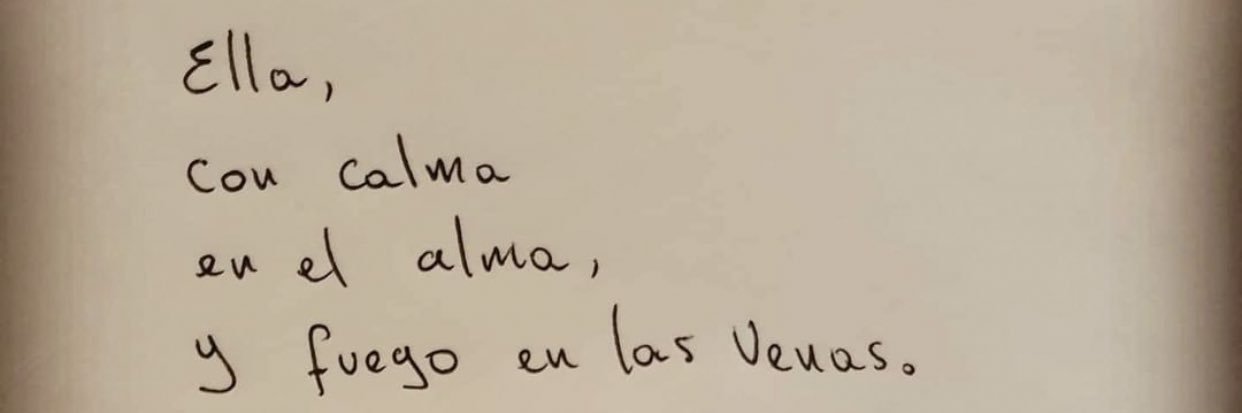 Ella,
con calma
en el alma,
y fuego en las venas.